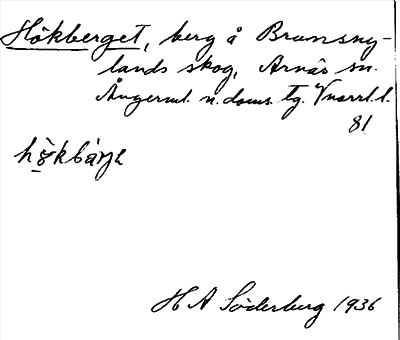 Hökberget, berg å Brunsny-
lands skog, Arnäs sn.
Ångerml. n. doms. tg. V narrl. l.
81
hö̀kbárje
H A Söderberg 1936